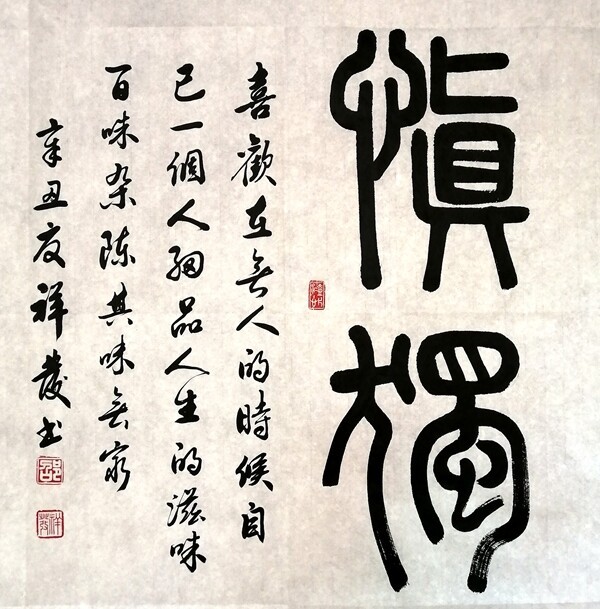 慎獨
喜歡在無人的時候自
己一個人細品人生的滋味
百味杂陈其味無穷
辛丑友祥发书